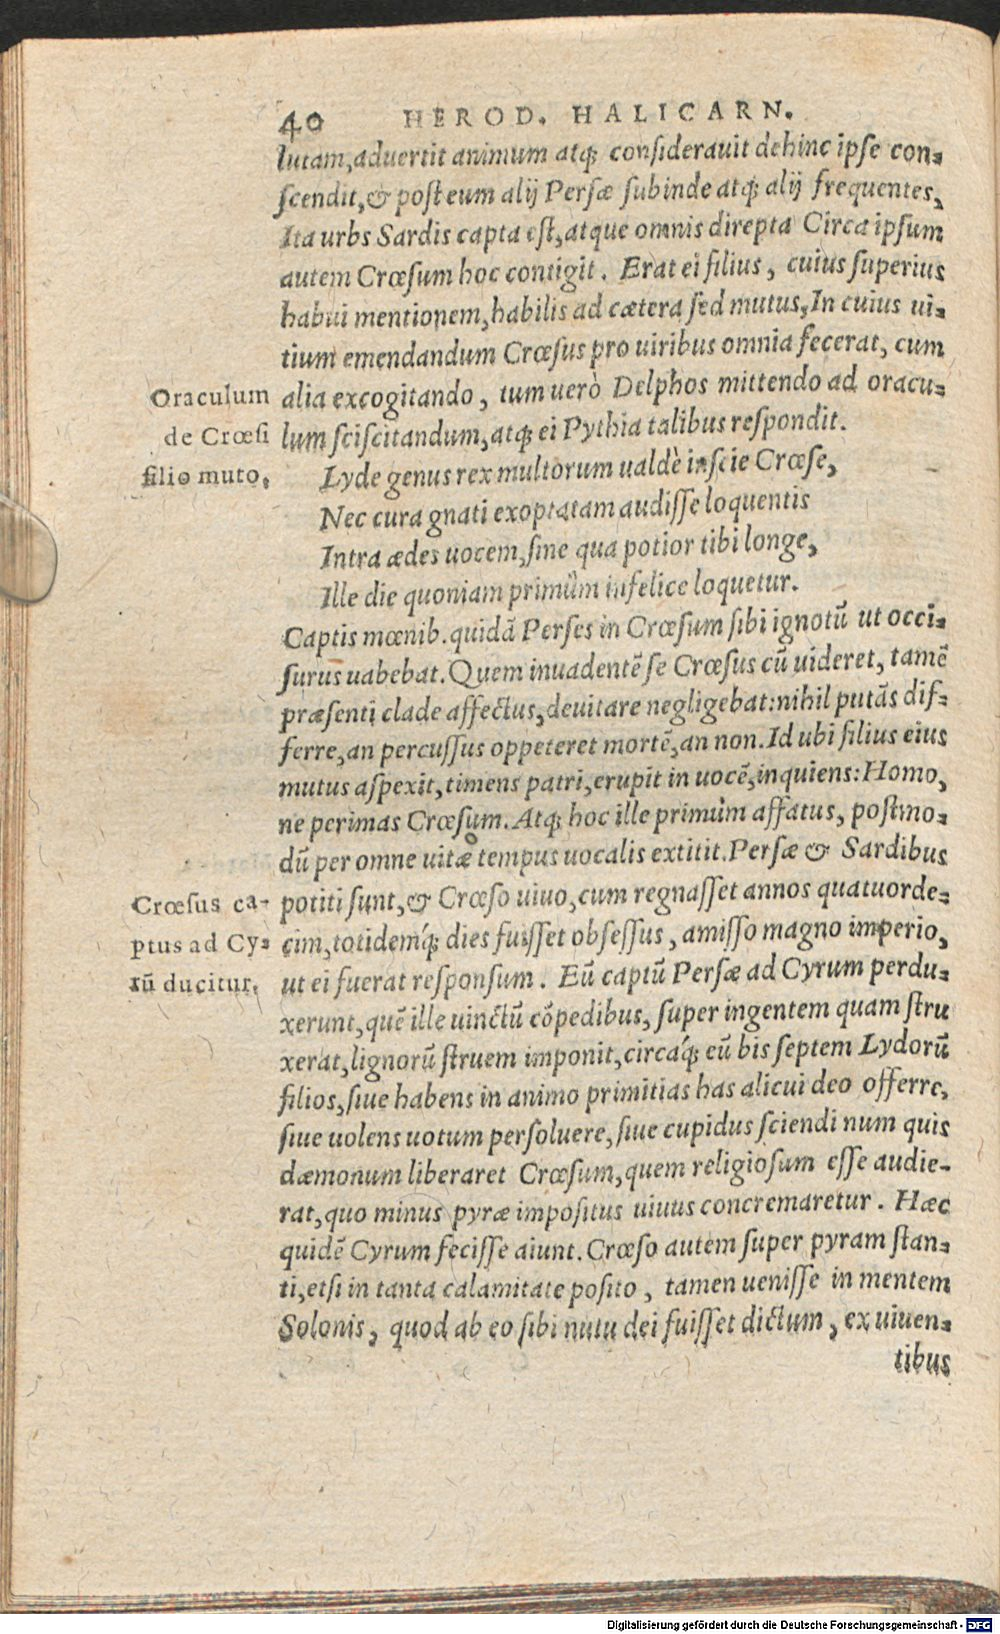 40 HEROD. HALICARN.
lutam, aduertit animum atq; considerauit dehinc ipse con-
scendit, & post eum alij Persæ subinde atq; alij frequentes,
Ita urbs Sardis capta est, atque omnis direpta Circa ipsum
autem Crœsum hoc contigit. Erat ei filius, cuius superius
habui mentionem, habilis ad cætera sed mutus, In cuius ui-
tium emendandum Crœsus pro uiribus omnia fecerat, cum
Oraculum
de Crœsi
filio muto.
alia excogitando, tum uerò Delphos mittendo ad oracu-
lum sciscitandum, atq; ei Pythia talibus respondit.
Lyde genus rex multorum ualdè inscie Crœse,
Nec cura gnati exoptatam audisse loquentis
Intra ædes uocem, sine qua potior tibi longe,
Ille die quoniam primùm infelice loquetur.
Captis mœnib. quidã Perses in Crœsum sibi ignotũ ut occi-
surus uabebat. Quem inuadentẽ se Crœsus cũ uideret, tamẽ
præsenti clade affectus, deuitare negligebat: nihil putãs dif-
ferre, an percussus oppeteret mortẽ, an non. Id ubi filius eius
mutus aspexit, timens patri, erupit in uocẽ, inquiens: Homo,
ne perimas Crœsum. Atq; hoc ille primùm affatus, postmo-
dũ per omne uitæ tempus uocalis extitit. Persæ & Sardibus
Crœsus ca-
ptus ad Cy-
rũ ducitur.
potiti sunt, & Crœso uiuo, cum regnasset annos quatuorde-
cim, totidemq́; dies fuisset obsessus, amisso magno imperio,
ut ei fuerat responsum. Eũ captũ Persæ ad Cyrum perdu-
xerunt, quẽ ille uinctũ cõpedibus, super ingentem quam stru
xerat, lignorũ struem imponit, circaq́; eũ bis septem Lydorũ
filios, siue habens in animo primitias has alicui deo offerre,
siue uolens uotum persoluere, siue cupidus sciendi num quis
dæmonum liberaret Crœsum, quem religiosum esse audie-
rat, quo minus pyræ impositus uiuus concremaretur. Hæc
quidẽ Cyrum fecisse aiunt. Crœso autem super pyram stan-
ti, etsi in tanta calamitate posito, tamen uenisse in mentem
Solonis, quod ab eo sibi nutu dei fuisset dictum, ex uiuen-
tibus
Digitalisierung gefördert durch die Deutsche Forschungsgemeinschaft - DFG